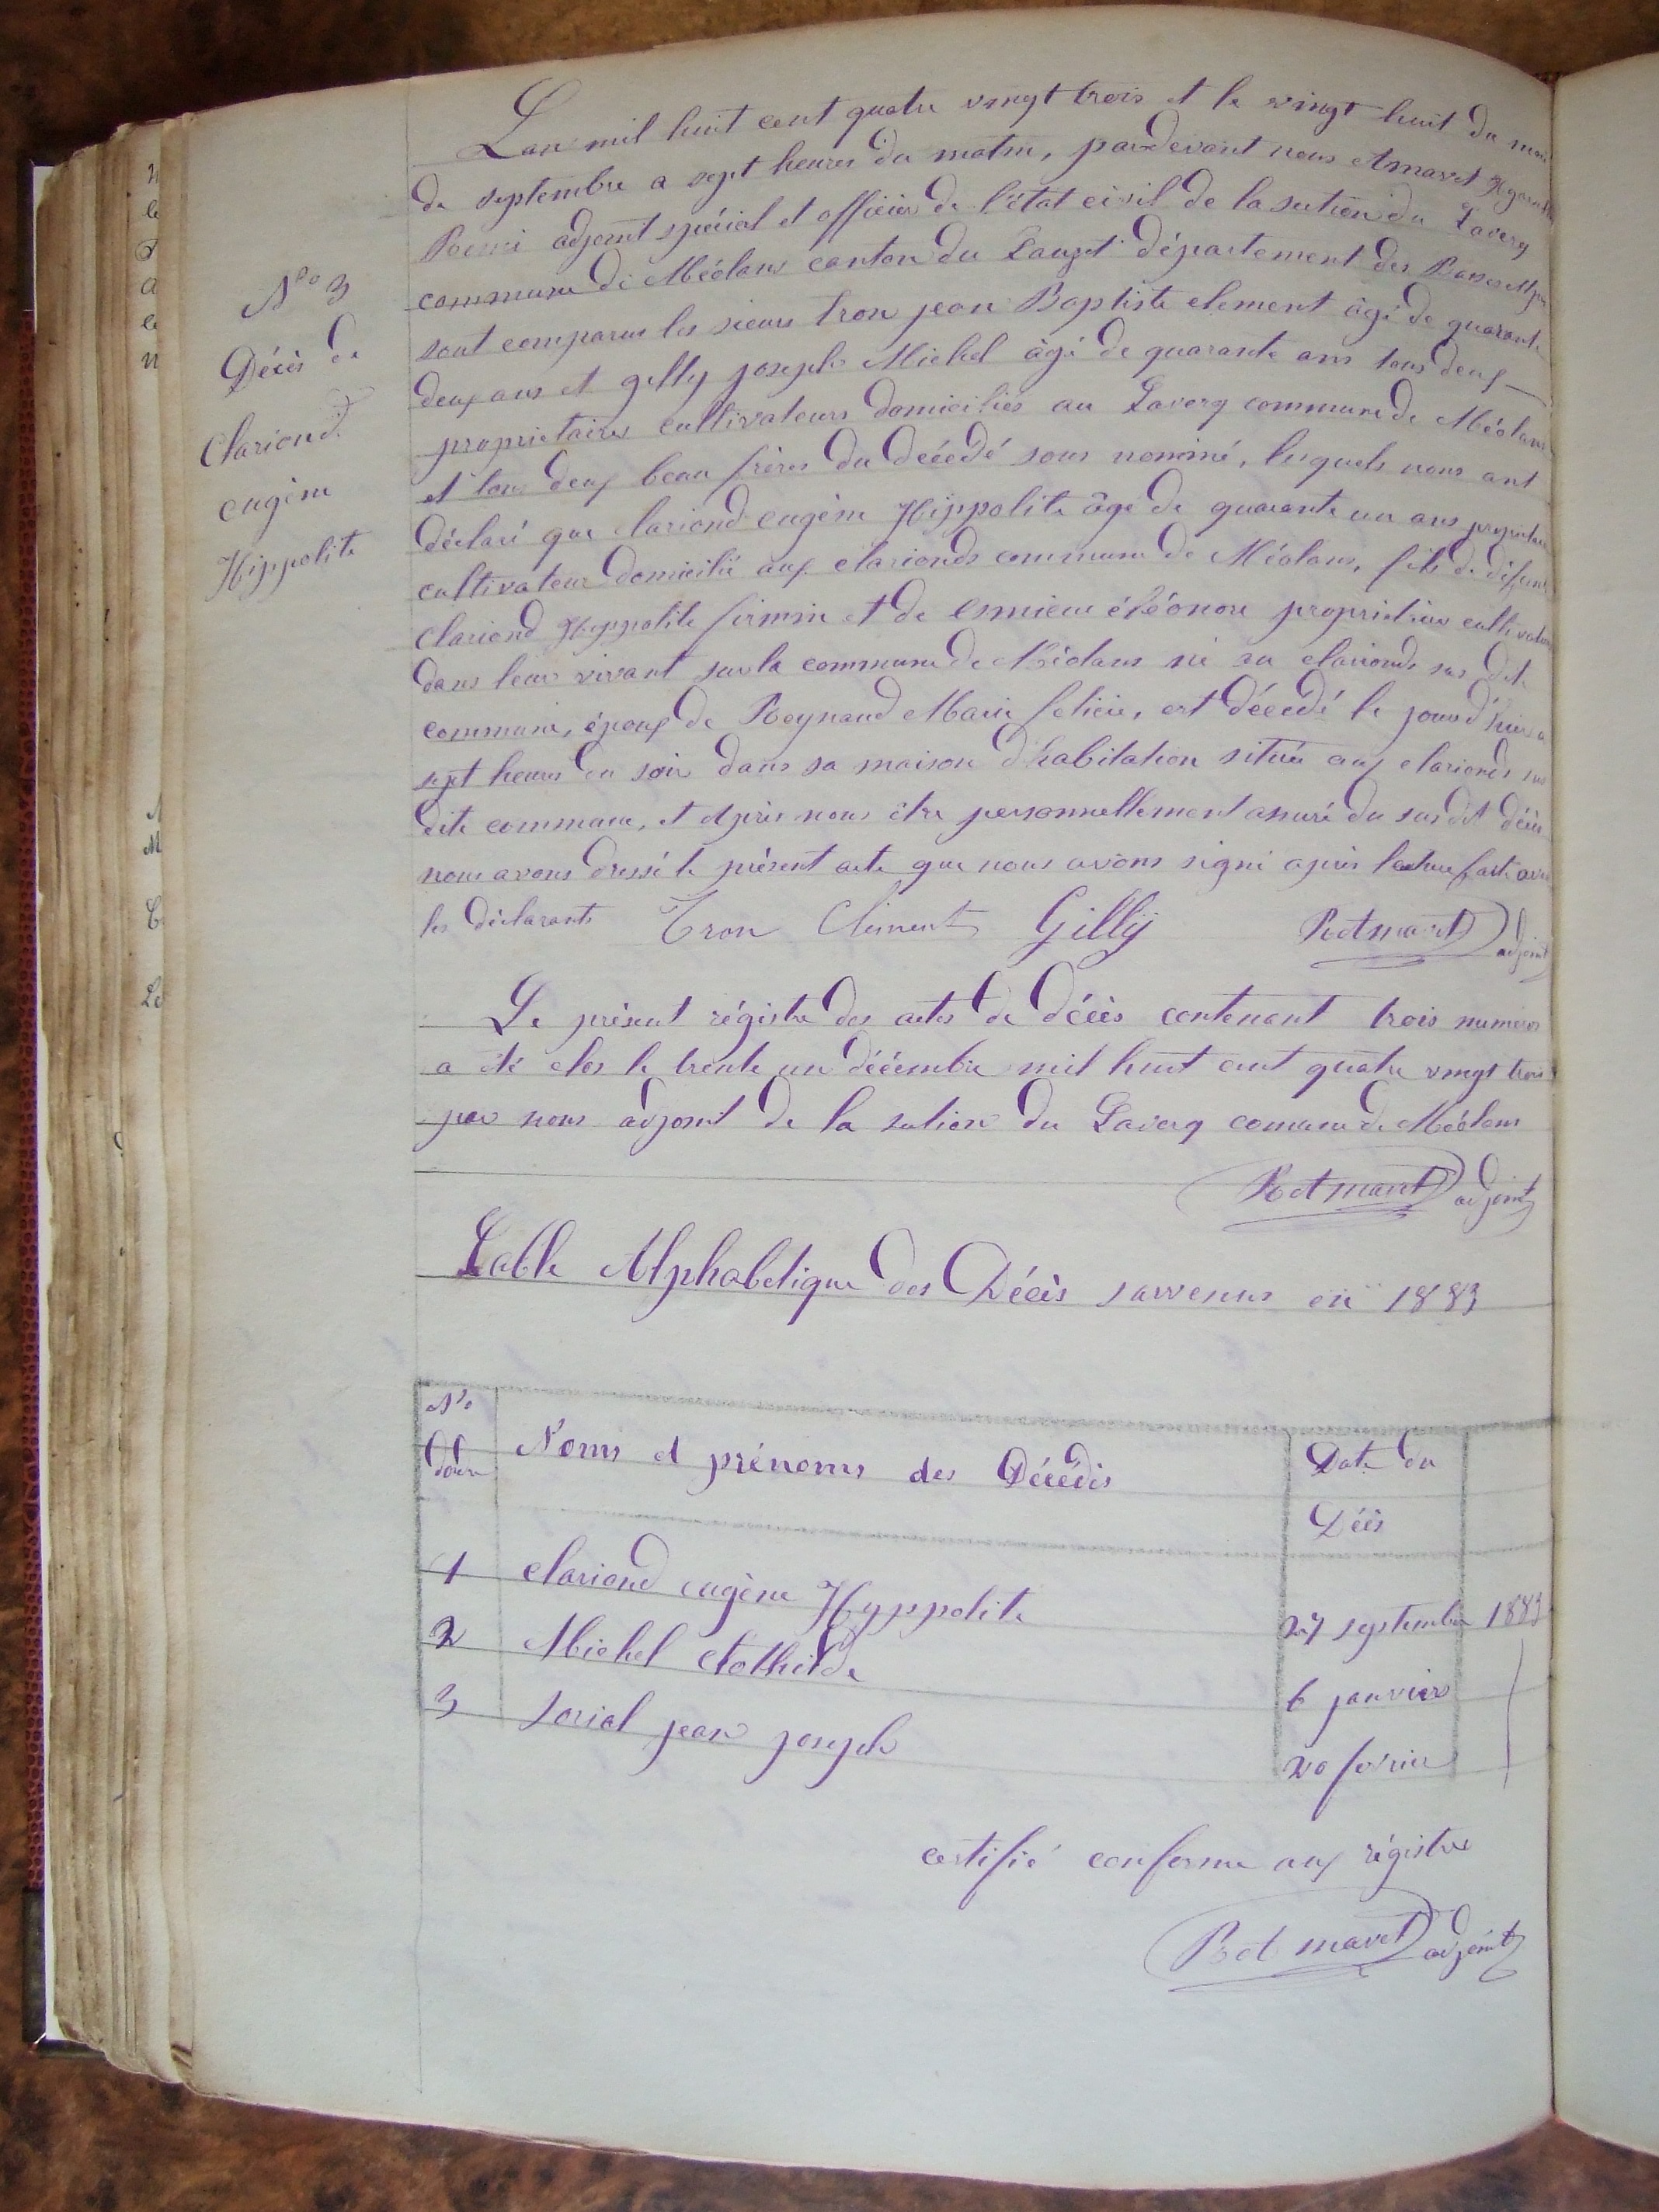 N° 3
Décès de
Clariond
eugène
Hippolite
L'an mil huit cent quatre vingt trois et le vingt huit du mois
de septembre a sept heures du matin, pardevant nous
Remi adjoint spécial et officier de l'état civil de la section du Laverq
commune de Méolans canton du Lauzet département des Basses Alpes
sont comparus les sieurs tron jean Baptiste clement âgé de quarante
deux ans et gilly joseph Michel âgé de quarante ans tous deux
proprietaires cultivateurs domiciliés au Laverq commune de Méolans
et tous deux beau frères du décédé sous nommé, lesquels nous ont
déclaré que clariond eugène Hippolite âgé de quarante un ans proprietaire
cultivateur domicilié aux clarionds commune de Méolans, fils de défunt
clariond Hyppolite firmin et de esmieu éléonore proprietaires cultivateurs
dans leur vivant sur la commune de Méolans né au clarionds sus dite
commune, époux de Reynaud Marie felicie, est décédé le jour d'hier a
sept heures du soir dans sa maison d'habitation située aux clarionds sus
dite commune, et après nous être personnellement assuré du sus dit décès
nous avons dressé le présent acte que nous avons signé après lecture faite avec
les déclarants Tron Clément Gilly adjoint
Le présent régistre des actes de décès contenant trois numéros
a été clos le trente un décembre mil huit cent quatre vingt trois
par nous adjoint de la section du Laverq comune de Méolans
adjoint
Table Alphabetique des Décès survenus en 1883
N° d'ordre Noms et prénoms des Décédés Date du Décès
1 clariond eugène Hyppolite 27 septembre 1883
2 Michel clothilde 6 janvier
3 soriel jean joseph 20 fevrier
certifié conforme aux régistre
adjoint